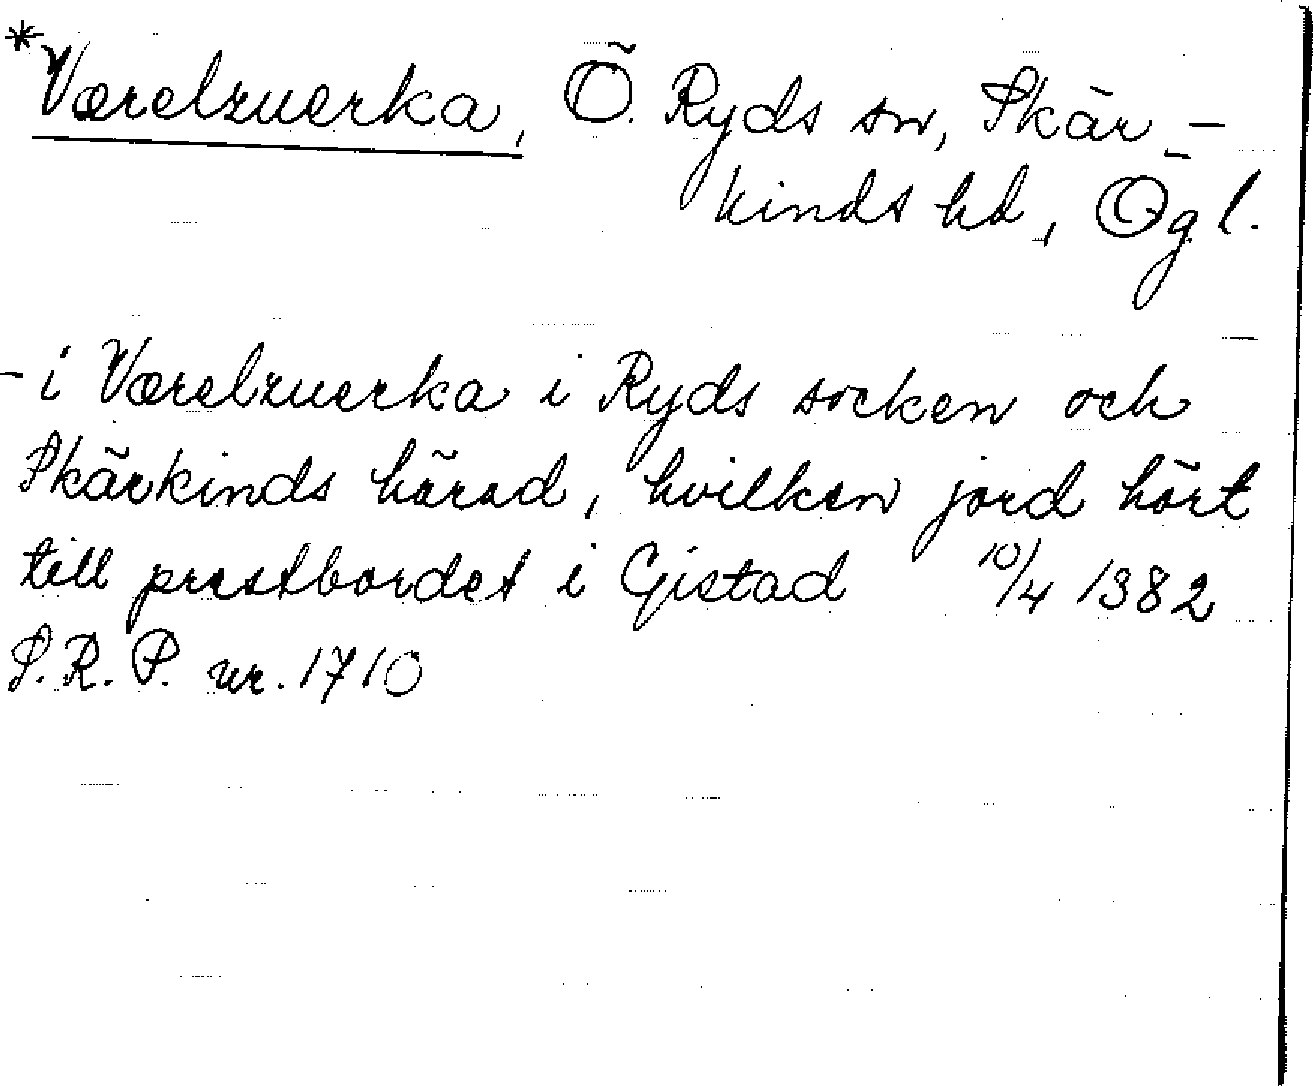 *Værelzuerka, Ö. Ryds sn, Skär-
kinds hd, Ögl.
- i Værelzuerka i Ryds socken och
Skärkinds härad, hvilken jord hört
till prestbordet i Gistad 10/4 1382
S.R.P. nr. 1710